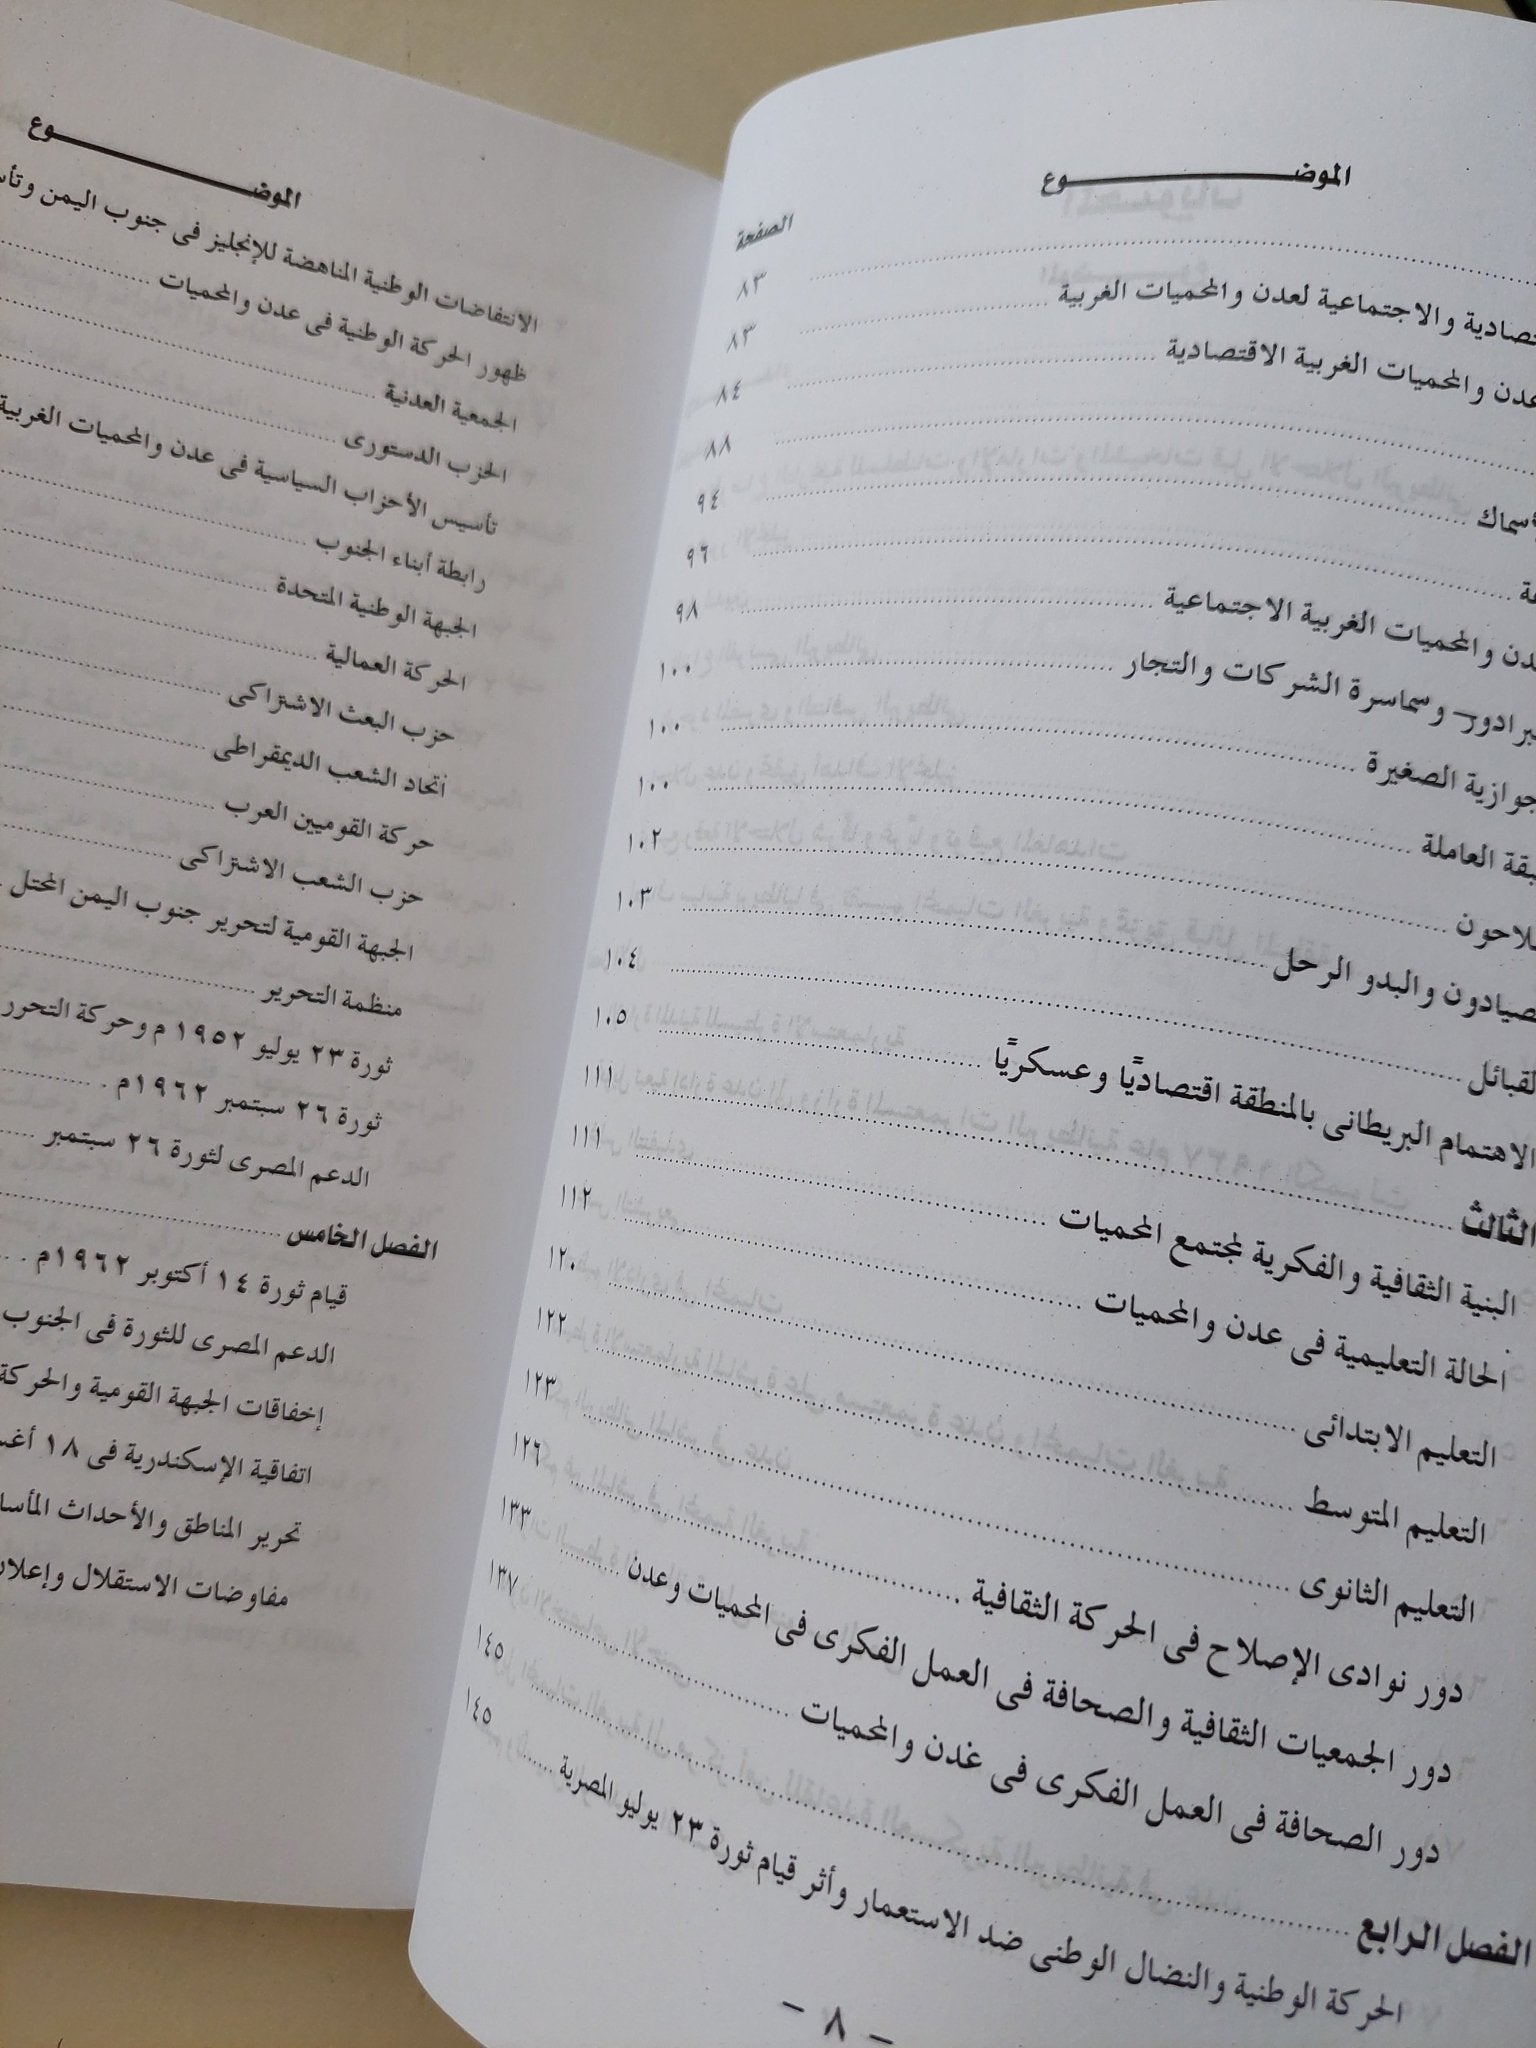 الموضــوع
الصفحة
٨٣
تصادية والاجتماعية لعدن والمحميات الغربية ٨٣
عدن والمحميات الغربية الاقتصادية ٨٤
٨٨
الأسماك ٩٤
٩٦
والمحميات الغربية الاجتماعية ٩٨
وسماسرة الشركات والتجار ١٠٠
الصغيرة ١٠٠
العاملة ١٠٠
١٠٢
والبدو الرحل ١٠٣
القبائل ١٠٤
الاهتمام البريطانى بالمنطقة اقتصاديًا وعسكريًا ١٠٥
الثالث ١١١
البنية الثقافية والفكرية لمجتمع المحميات ١١١
الحالة التعليمية فى عدن والمحميات ١١٢
التعليم الابتدائى ١٢٠
التعليم المتوسط ١٢٢
التعليم الثانوى ١٢٣
دور نوادى الإصلاح فى الحركة الثقافية ١٢٦
دور الجمعيات الثقافية والصحافة فى العمل الفكرى فى المحميات وعدن ١٣٣
دور الصحافة فى العمل الفكرى فى غدن والمحميات ١٣٧
الفصل الرابع ١٤٥
الحركة الوطنية والنضال الوطنى ضد الاستعمار وأثر قيام ثورة ٢٣ يوليو المصرية ١٤٥
– ٨ –
الموضــوع
الانتفاضات الوطنية المناهضة للإنجليز فى جنوب اليمن
ظهور الحركة الوطنية فى عدن والمحميات
الجمعية العدنية
الحزب الدستورى
تأسيس الأحزاب السياسية فى عدن والمحميات الغربية
رابطة أبناء الجنوب
الجبهة الوطنية المتحدة
الحركة العمالية
حزب البعث الاشتراكى
اتحاد الشعب الديمقراطى
حركة القوميين العرب
حزب الشعب الاشتراكى
الجبهة القومية لتحرير جنوب اليمن المحتل
منظمة التحرير
ثورة ٢٣ يوليو ١٩٥٢م وحركة التحرر
ثورة ٢٦ سبتمبر ١٩٦٢م
الدعم المصرى لثورة ٢٦ سبتمبر
الفصل الخامس
قيام ثورة ١٤ أكتوبر ١٩٦٢م
الدعم المصرى للثورة فى الجنوب
إخفاقات الجبهة القومية والحركة
اتفاقية الإسكندرية فى ١٨
تحرير المناطق والأحداث
مفاوضات الاستقلال